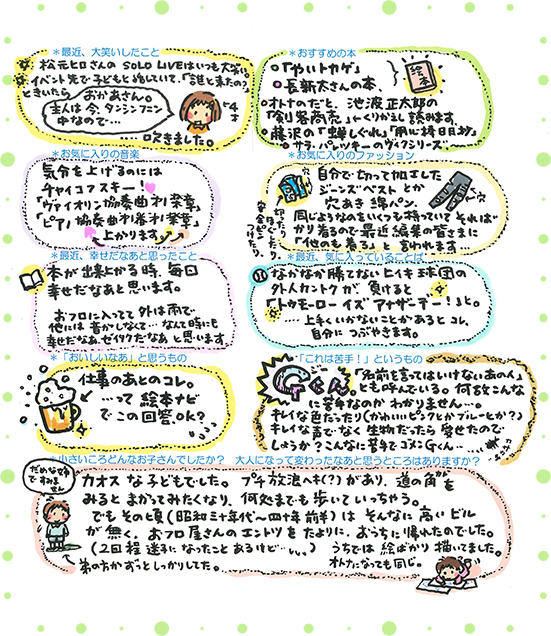 *最近、大笑いしたこと
松元ヒロさんの SOLO LIVEはいつも大笑。
イベント先で子どもと拗いていて、「誰と来たの?」
ときいたら
おかあさん。
主人は今、タンシンフニン
中なので…
4才
……吹きました。
*おすすめの本
「やいトカゲ」
長新太さんの本、
絵本
オトナのだと、池波正太郎の
「剣客商売」くりかえし読みます。
藤沢の「蝉しぐれ」「用心棒日月抄」
サラ・パレツキーのヴィクシリーズ……
*お気に入りの音楽
気分を上げるのには
チャイコフスキー!
「ヴァイオリン協奏曲 第一楽章」
「ピアノ協奏曲 第一楽章」
上がります。
*お気に入りのファッション
自分で切って加工した
ジーンズベストとか
穴あき綿パン。
同じようなのをいくつも持っていて そればっ
かり着るので最近 編集の皆さまに
「他のも着ろ」と 言われます…
*最近、幸せだなあと思ったこと
本が出来上がる時、毎回
幸せだなあと思います。
おフロに入ってて 外は雨で
他には 音がしなくて…なんて時にも
幸せだなあ、ゼイタクだなあ と思います。
*最近、気に入っていることば
なかなか勝てないヒイキ球団の
外人カントクが、負けると
「トゥモーロー イズ アナザーデー!」と。
…上手くいかないことがあるとコレ、
自分に つぶやきます。
*「おいしいなあ」と思うもの
仕事のあとのコレ。
…って 絵本ナビ
でこの回答、OK?
*「これは苦手!」というもの
Gくん。
「名前を言ってはいけないあの人」
とも呼んでいる。何故こんな
に苦手なのか わかりません…。
キレイな色だったり(かわいいピンクとかブルーとか?)
キレイな声でなく生物だったら 愛せたので
しょうか?こんなに苦手でゴメンGくん…
*小さいころどんなお子さんでしたか? 大人になって変わったなあと思うところはありますか?
だめな姉
ですみま
せん
カオス な子どもでした。プチ放浪ヘキ(?)があり、道の角を
みると まがってみたくなり、何処までも歩いていっちゃう。
でも その頃(昭和三十年代〜四十年前半)は そんなに高いビル
が無く、おフロ屋さんのエントツをたよりに、おうちに帰れたのでした。
(2回程 迷子になったことあるけど…。)
うちでは 絵ばかり描いてました。
弟の方がずっとしっかりしてた。
オトナになっても同じ。